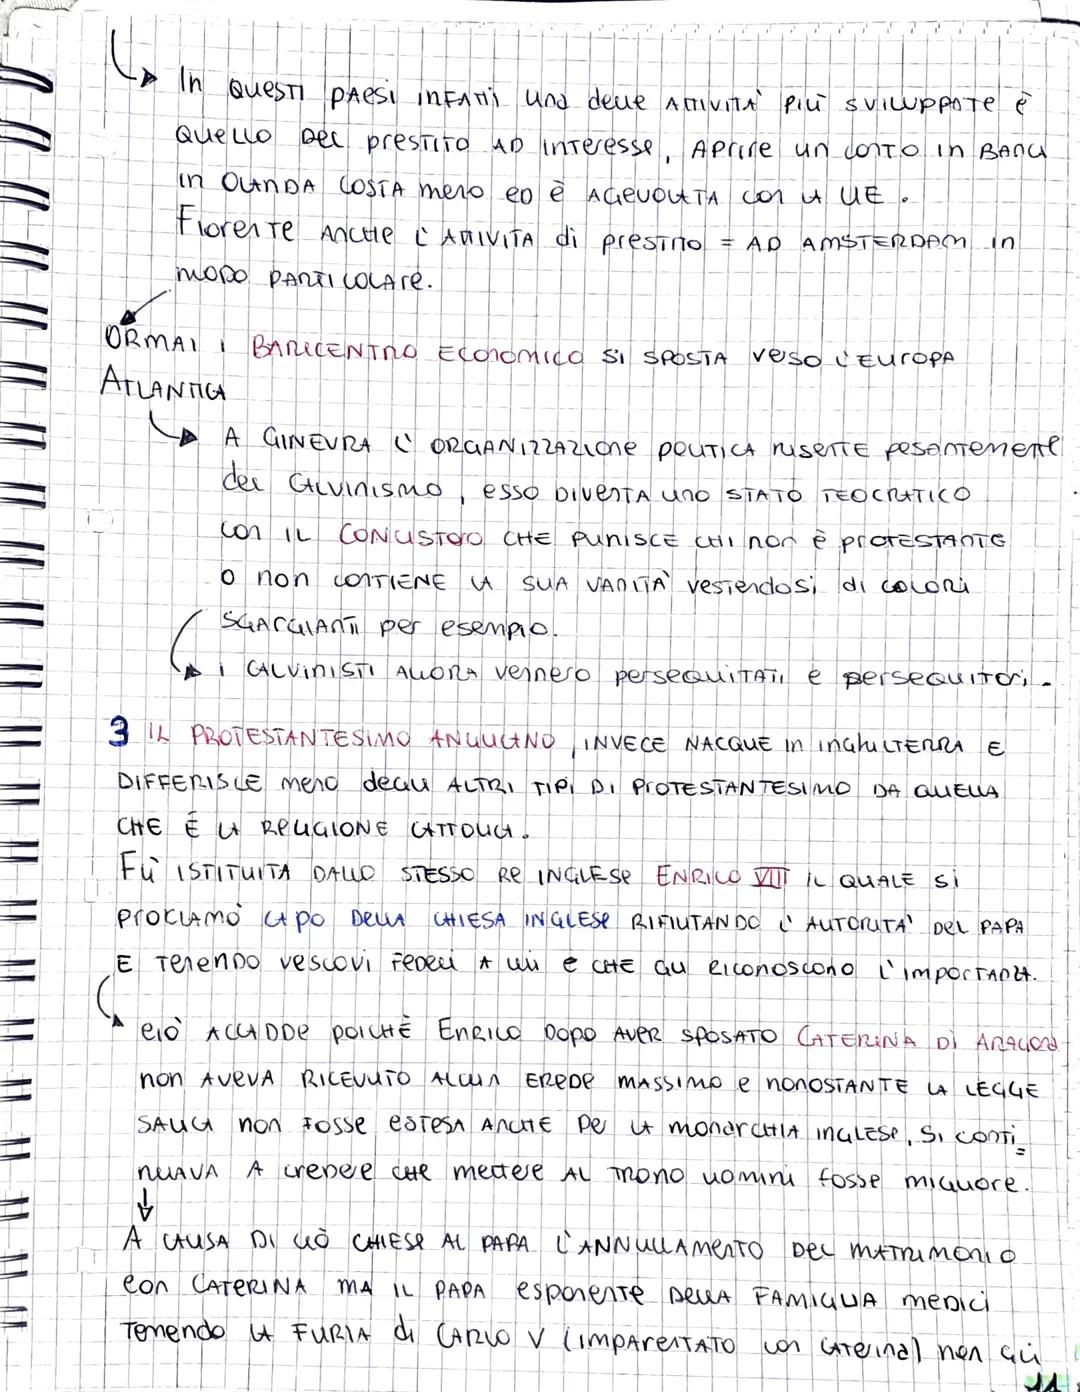 In QUESTI PAESI INFATTI UNA delle ATTIVITÀ PIÙ SVILUPPATE è
QUELLO DEL PRESTITO AD INTERESSE, APRIRE UN CONTO IN BANCA
IN OLANDA COSTA meno ED è AGEVOLATA con LA UE.
FIORENTE ANCHE L'ATTIVITÀ di PRESTITO = AD AMSTERDAM in
MODO PARTICOLARE.
ORMAI I BARICENTRO ECONOMICO SI SPOSTA VESO L'EUROPA
ATLANTICA
A GINEVRA L'ORGANIZZAZIONE POLITICA RISENTE PESANTEMENTE
del CALVINISMO, ESSO DIVENTA UNO STATO TEOCRATICO
con IL CONCISTORO CHE PUNISCE CHI non è PROTESTANTE
O non CONTIENE LA SUA VANITÀ VESTENDOSI di COLORI
SGARGIANTI per esempio.
I CALVINISTI ALLORA vennero PERSEQUITATI e PERSEQUITORI.
3 IL PROTESTANTESIMO ANGLICANO, INVECE NACQUE in INGHILTERRA E
DIFFERISCE meno degli ALTRI TIPI DI PROTESTANTESIMO DA QUELLA
CHE È LA RELIGIONE CATTOLICA.
FÙ ISTITUITA DALLO STESSO RE INGLESE ENRICO VIII IL QUALE SI
PROCLAMÒ CAPO DELLA CHIESA INGLESE RIFIUTANDO L'AUTORITÀ DEL PAPA
E TENENDO VESCOVI FEDELI A LUI e CHE GLI RICONOSCONO L'IMPORTANZA.
CIÒ ACCADDE POICHÈ ENRICO DOPO AVER SPOSATO CATERINA DI ARAGONA
non AVEVA RICEVUTO ALCUN EREDE MASSIMO e NONOSTANTE LA LEGGE
SALICA non FOSSE ESTESA ANCHE PER LA MONARCHIA INGLESE, SI CONTI=
NUAVA A CREDERE CHE METTERE AL TRONO UOMINI FOSSE MIGLIORE.
A CAUSA DI CIÒ CHIESE AL PAPA L'ANNULLAMENTO DEL MATRIMONIO
con CATERINA MA IL PAPA ESPONENTE DELLA FAMIGLIA MEDICI
TEMENDO LA FURIA di CARLO V (IMPARENTATO con CATERINA) non GLI
11